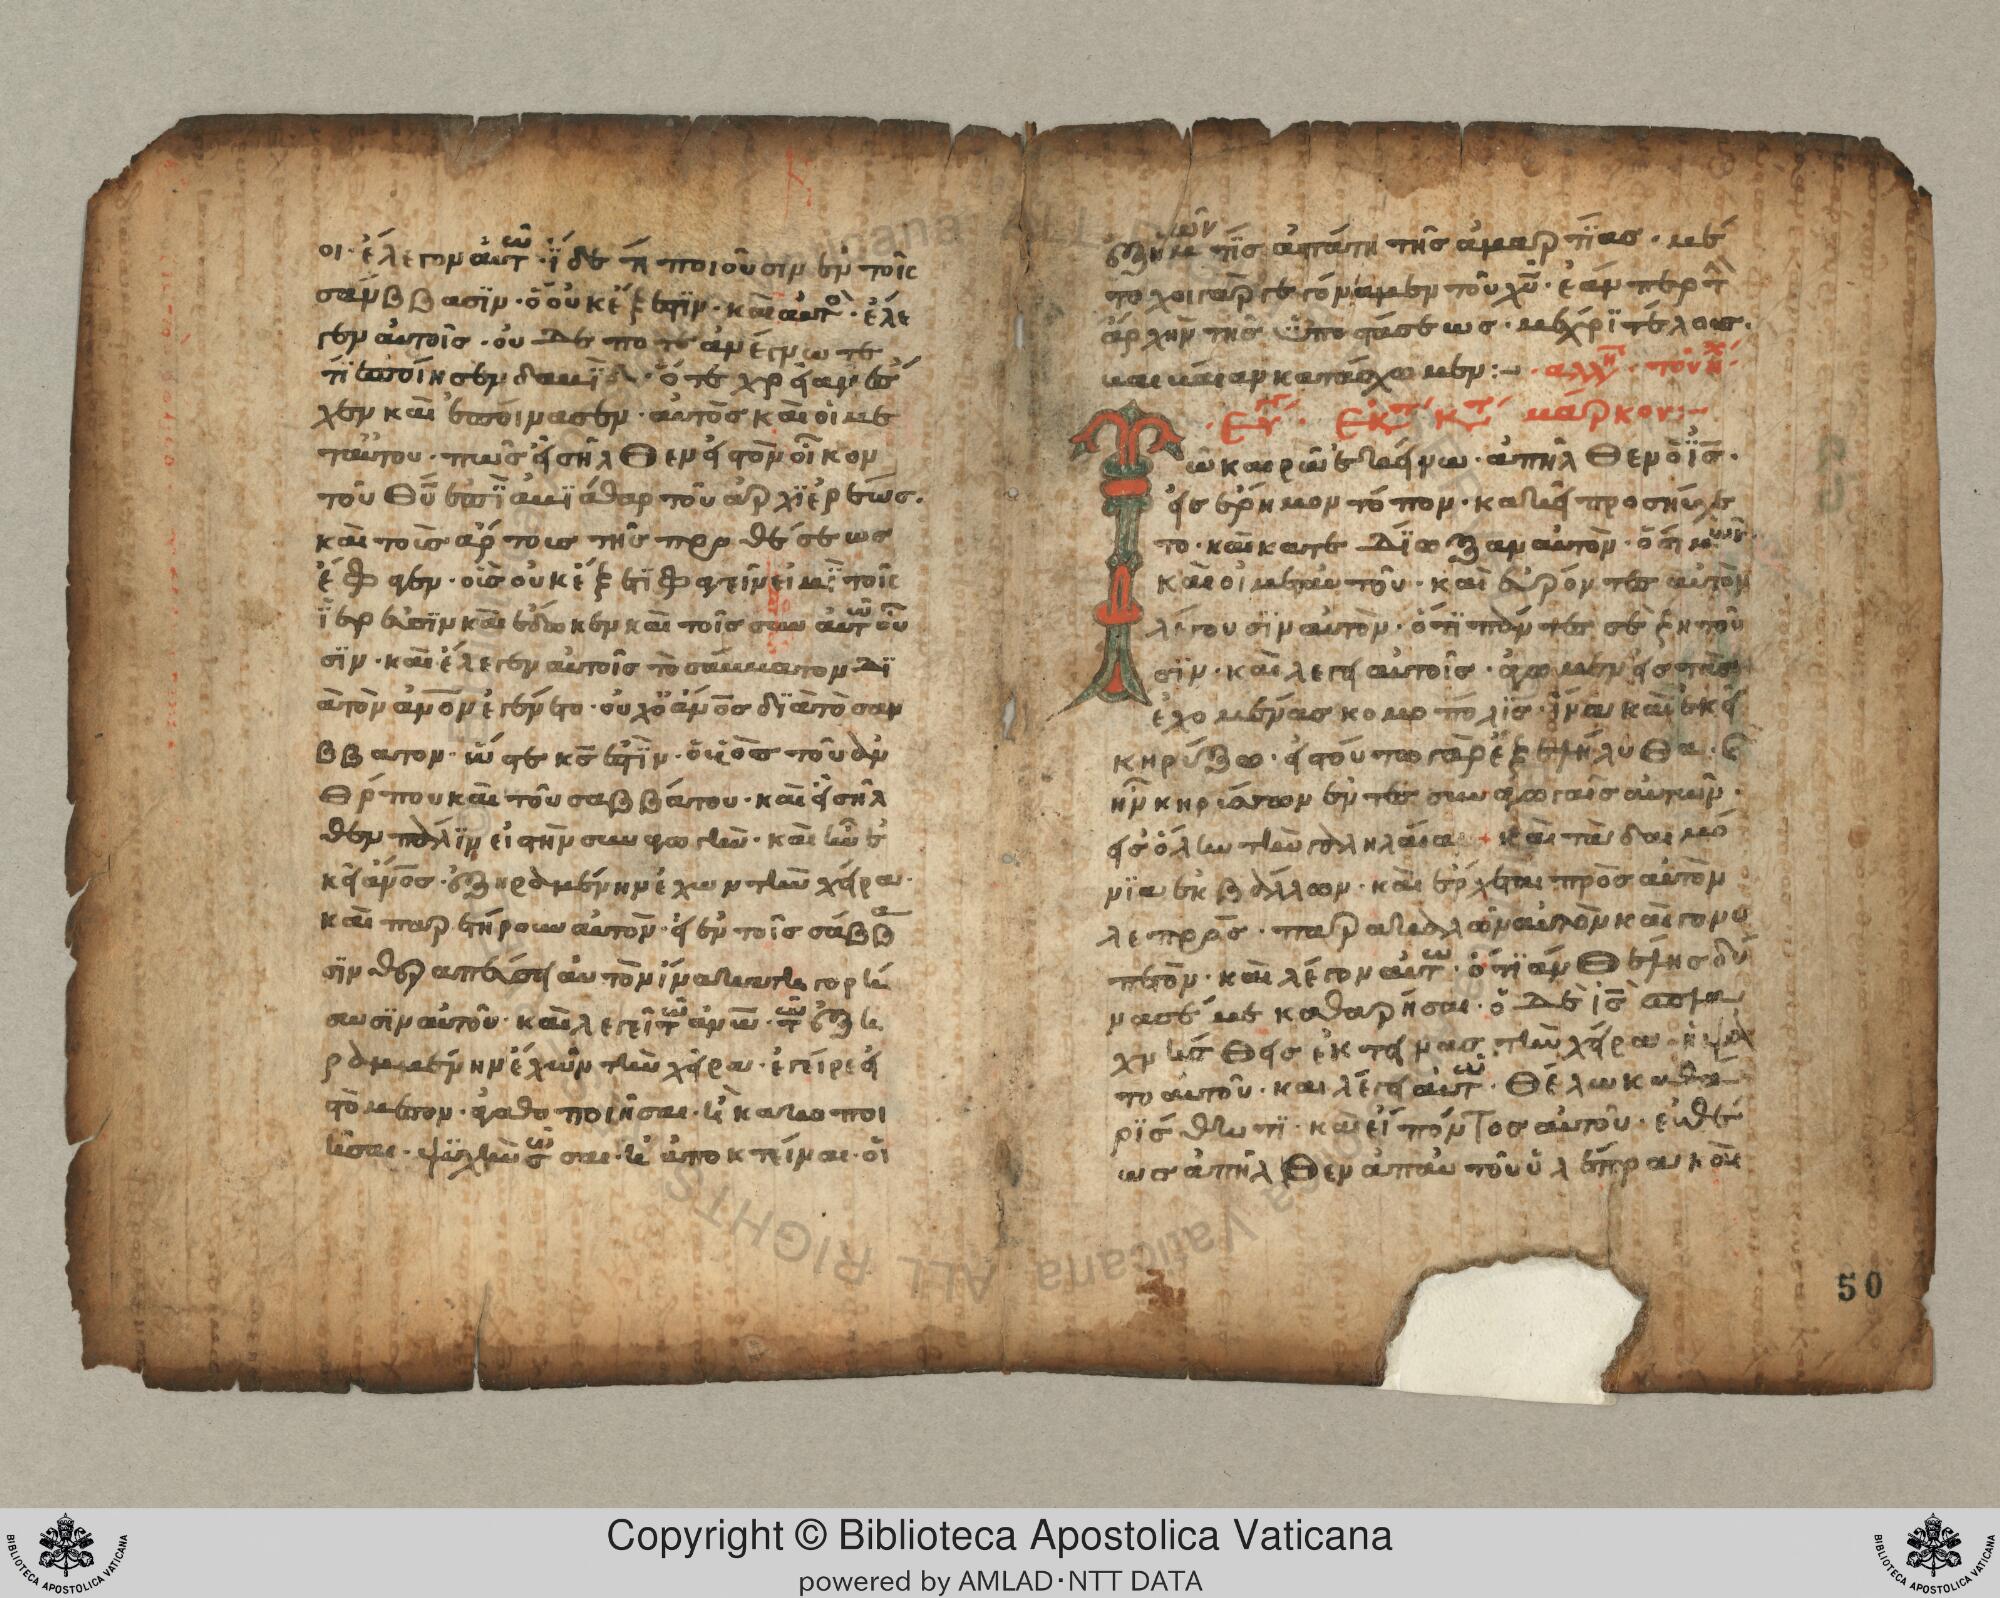 οι· ἔλεγον αὐτῶ· ἴδε τί ποιοῦσιν ἐν τοῖς
σάνββασϊν· ὃ οὐκ ἔξεστϊν· καὶ αὐτὸ· ἔλε
γεν αὐτοῖς· οὐδὲ ποτε ἀνέγνωτε
τί ἐποίησεν δαυϊδ· ὅτε χρείαν ἔ
χεν καὶ ἐποίνασεν· αὐτὸς καὶ οἱ με
τ αὐτου· πῶς εἰσῆλθεν εἰς τὸν οἶκον
τοῦ θῦ ἐπῒ ἀωϊάθαρ τοῦ ἀρχϊερέως·
καὶ τοὺς ἄρτους τῆς προθέσεως
ἔφαγεν· οὓς οὐκ ἔξεστϊ φαγεῖν εἰ μῒ τοῖς
ἱερεῦσϊν καὶ ἔδωκεν καὶ τοῖς σὺν αὐτῶ οὖ
σϊν· καὶ ἔλεγεν αὐτοῖς τὸ σάμματον δϊ
ὰ τὸν ἀνον ἐγένετο· οὐχ ὁ ἄνος δϊὰ τὸ σαν
ββατον· ὥστε κς ἐστϊν· ὁ ϋἱὸς τοῦ ἀν
θρπου καὶ τοῦ σαββάτου· καὶ εἰσῆλ
θεν πάλϊν εἰς τὴν συναγωγὴν· καὶ ἦν ἐ
κεῖ ἄνος· ἐξηραμένην ἔχων τὴν χεῖρα·
καὶ παρετήρουν αὐτὸν· εἰ ἐν τοῖς σάββα
σϊν θεραπεύσει αὐτὸν ἵνα κατηγορή
σωσϊν αὐτοῦ· καὶ λέγει τῶ ἀνω· τῶ ἐξη
ραμμένην ἔχων τὴν χεῖρα· ἔγειρε εἰ
ς τὸ μέσον· ἀγαθοποιῆσαι· ἢ κακοποι
ῆσαι· ψϋχὴν σῶσαι· ἢ ἀποκτεῖναι· οἱ
ἐξ ημῶν τϊς ἀπάτη τῆς ἁμαρτϊας· μέ
τοχοι γαρ γεγόναμεν τοῦ χῦ· ἐάν περ τ
ἀρχὴν τῆς ὑποστάσεως· μέχρϊ τέλους·
καταάσχωμεν:–
μάρκον:–
ῶ καιρῶ ἐκείνω· ἀπῆλθεν ὁ ϊς·
εἰς ἔρημον τόπον· κακεῖ προσηύχε
το· καὶ κατεδϊωξαν αὐτὸν· ὁ σίμων
καὶ οἱ μετ αὐτοῦ· καὶ εὑρόντες αὐτὸν
λέγουσϊν αὐτὸν· ὅτϊ πάντες σὲ ζητοῦ
σϊν· καὶ λεγει αὐτοῖς· ἄγωμεν εἰς τὰς
ἐχομένας κομοπόλϊς· ἵνα κακεῖ
κηρύξω· εἰς τοῦτο γὰρ ἐξελήλυθα· ἐ
ἦν κηρύσσων ἐν τες συναγωγαῖς αὐτῶν·
εἰς ὅλην τὴν γαληλαία καὶ τὰ δαιμό
νϊα ἐκβάλλων· καὶ ἔρχεται πρὸς αὐτὸν
λεπρὸς· παρακαλῶν αὐτὸν καὶ γονυ
πετὸν· καὶ λέγον αὐτῶ· ὅτϊ ἀν θέλησ δύ
νασέ με καθαρήσαι· ὁ δὲ ϊς
ἐκτείνας τὴν χεῖρα ἥψα
το αὐτοῦ· καὶ λέγει αὐτῶ· θέλω καθα
ρϊσθητϊ· καὶ εἰπόντος αὐτοῦ· εὐθέ
ως ἀπῆλθεν ἀπ αὐτοῦ ὑ λέπρα καὶ
50
Copyright © Biblioteca Apostolica Vaticana
powered by AMLAD·NTT DATA
BIBLIOTECA APOSTOLICA VATICANA
BIBLIOTECA APOSTOLICA VATICANA